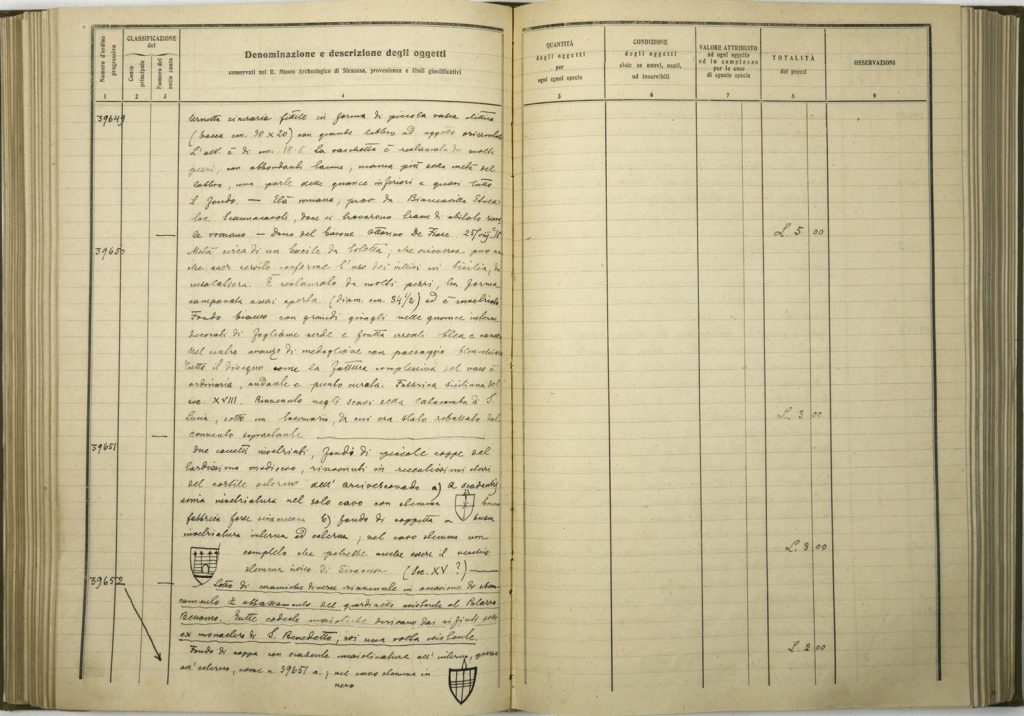 Numero d'ordine progressivo
CLASSIFICAZIONE del
Conto principale
Numero del sotto conto
Denominazione e descrizione degli oggetti
conservati nel R. Museo Archeologico di Siracusa, provenienza e titoli giustificativi
QUANTITÀ
degli oggetti
per
ogni egual specie
CONDIZIONE
degli oggetti
cioè: se nuovi, usati,
od inservibili
VALORE ATTRIBUITO
ad ogni oggetto
ed in complesso
per le cose
di eguale specie
TOTALITÀ
dei prezzi
OSSERVAZIONI
1 2 3 4 5 6 7 8 9
39649 Urnetta cineraria fittile in forma di piccola vasca
(bocca cm. 30 x 20) con grande labbro ad aggetto orizzontale
L'alt. è di cm. 18.5. La vaschetta è restaurata da molti
pezzi, con abbondanti lacune, manca più della metà del
labbro, una parte delle guance inferiori e quasi tutto
il fondo. — Età romana; prov. da Biancavilla Etnea
loc. dove si trovarono tracce di abitato
romano — Dono del Barone De Fiore L. 5 00
39650 Metà circa di un bacile da toletta, che viceversa può
che aver servito conforme l'uso dei in Sicilia, da
insalatiera. È restaurato da molti pezzi, ha forma
campanata assai aperta. (diam. cm. 34 1/2) ed è invetriato
Fondo bianco con grandi nelle guance interne
decorati di fogliame verde e frutta blea e
Nel centro avanzo di medaglione con paesaggio
Tutto il disegno come la fattura complessiva del vaso è
ordinaria, andante e punto curata. Fabbrica siciliana del
sec. XVIII. Rinvenuto negli scavi della Catacomba di S.
Lucia, sotto un lucernario, da cui era stato rebattato dal L. 3 00
convento soprastante
39651 Due invetriati, fondo di piccole coppe del
tardissimo medioevo, rinvenuti in recentissimi sterri
del cortile esterno dell'arcivescovado a) a
invetriatura nel solo cavo con stemma
fabbrica forse siracusana b) fondo di coppetta a buona
invetriatura interna ed esterna; nel cavo stemma non
completo che potrebbe anche essere il vecchio L. 3 00
stemma civico di Siracusa. (Sec. XV ?)
39652 Lotto di ceramiche diverse rinvenute in occasione
del giardinetto esistente al Palazzo
Tutte codeste maioliche derivano dai rifiuti dello
ex monastero di S. Benedetto, ivi una volta esistente.
Fondo di coppa con scadente maiolicatura all'interno, L. 2 00
all'esterno, come n. 39651 a; nel cavo stemma in
nero